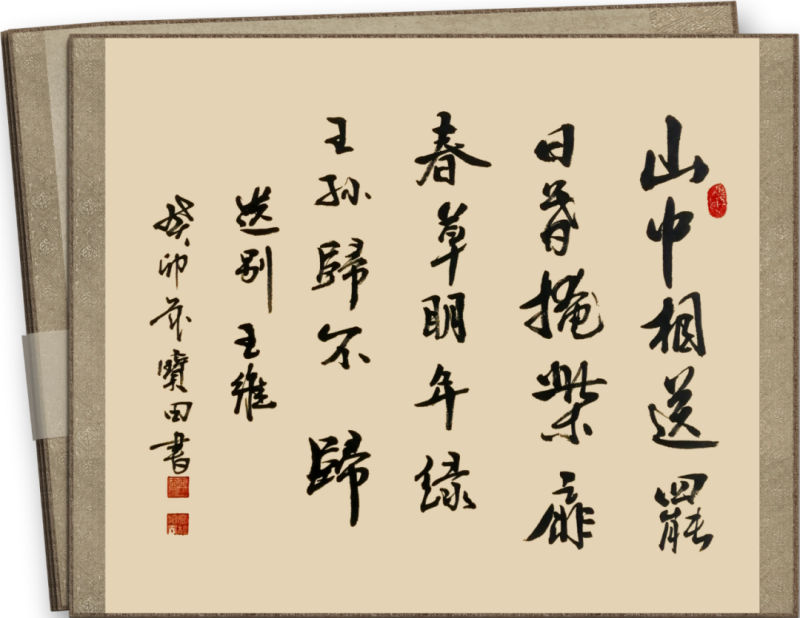 山中相送罷
日暮掩柴扉
春草明年綠
王孫歸不歸
送別 王維
癸卯 寶田書